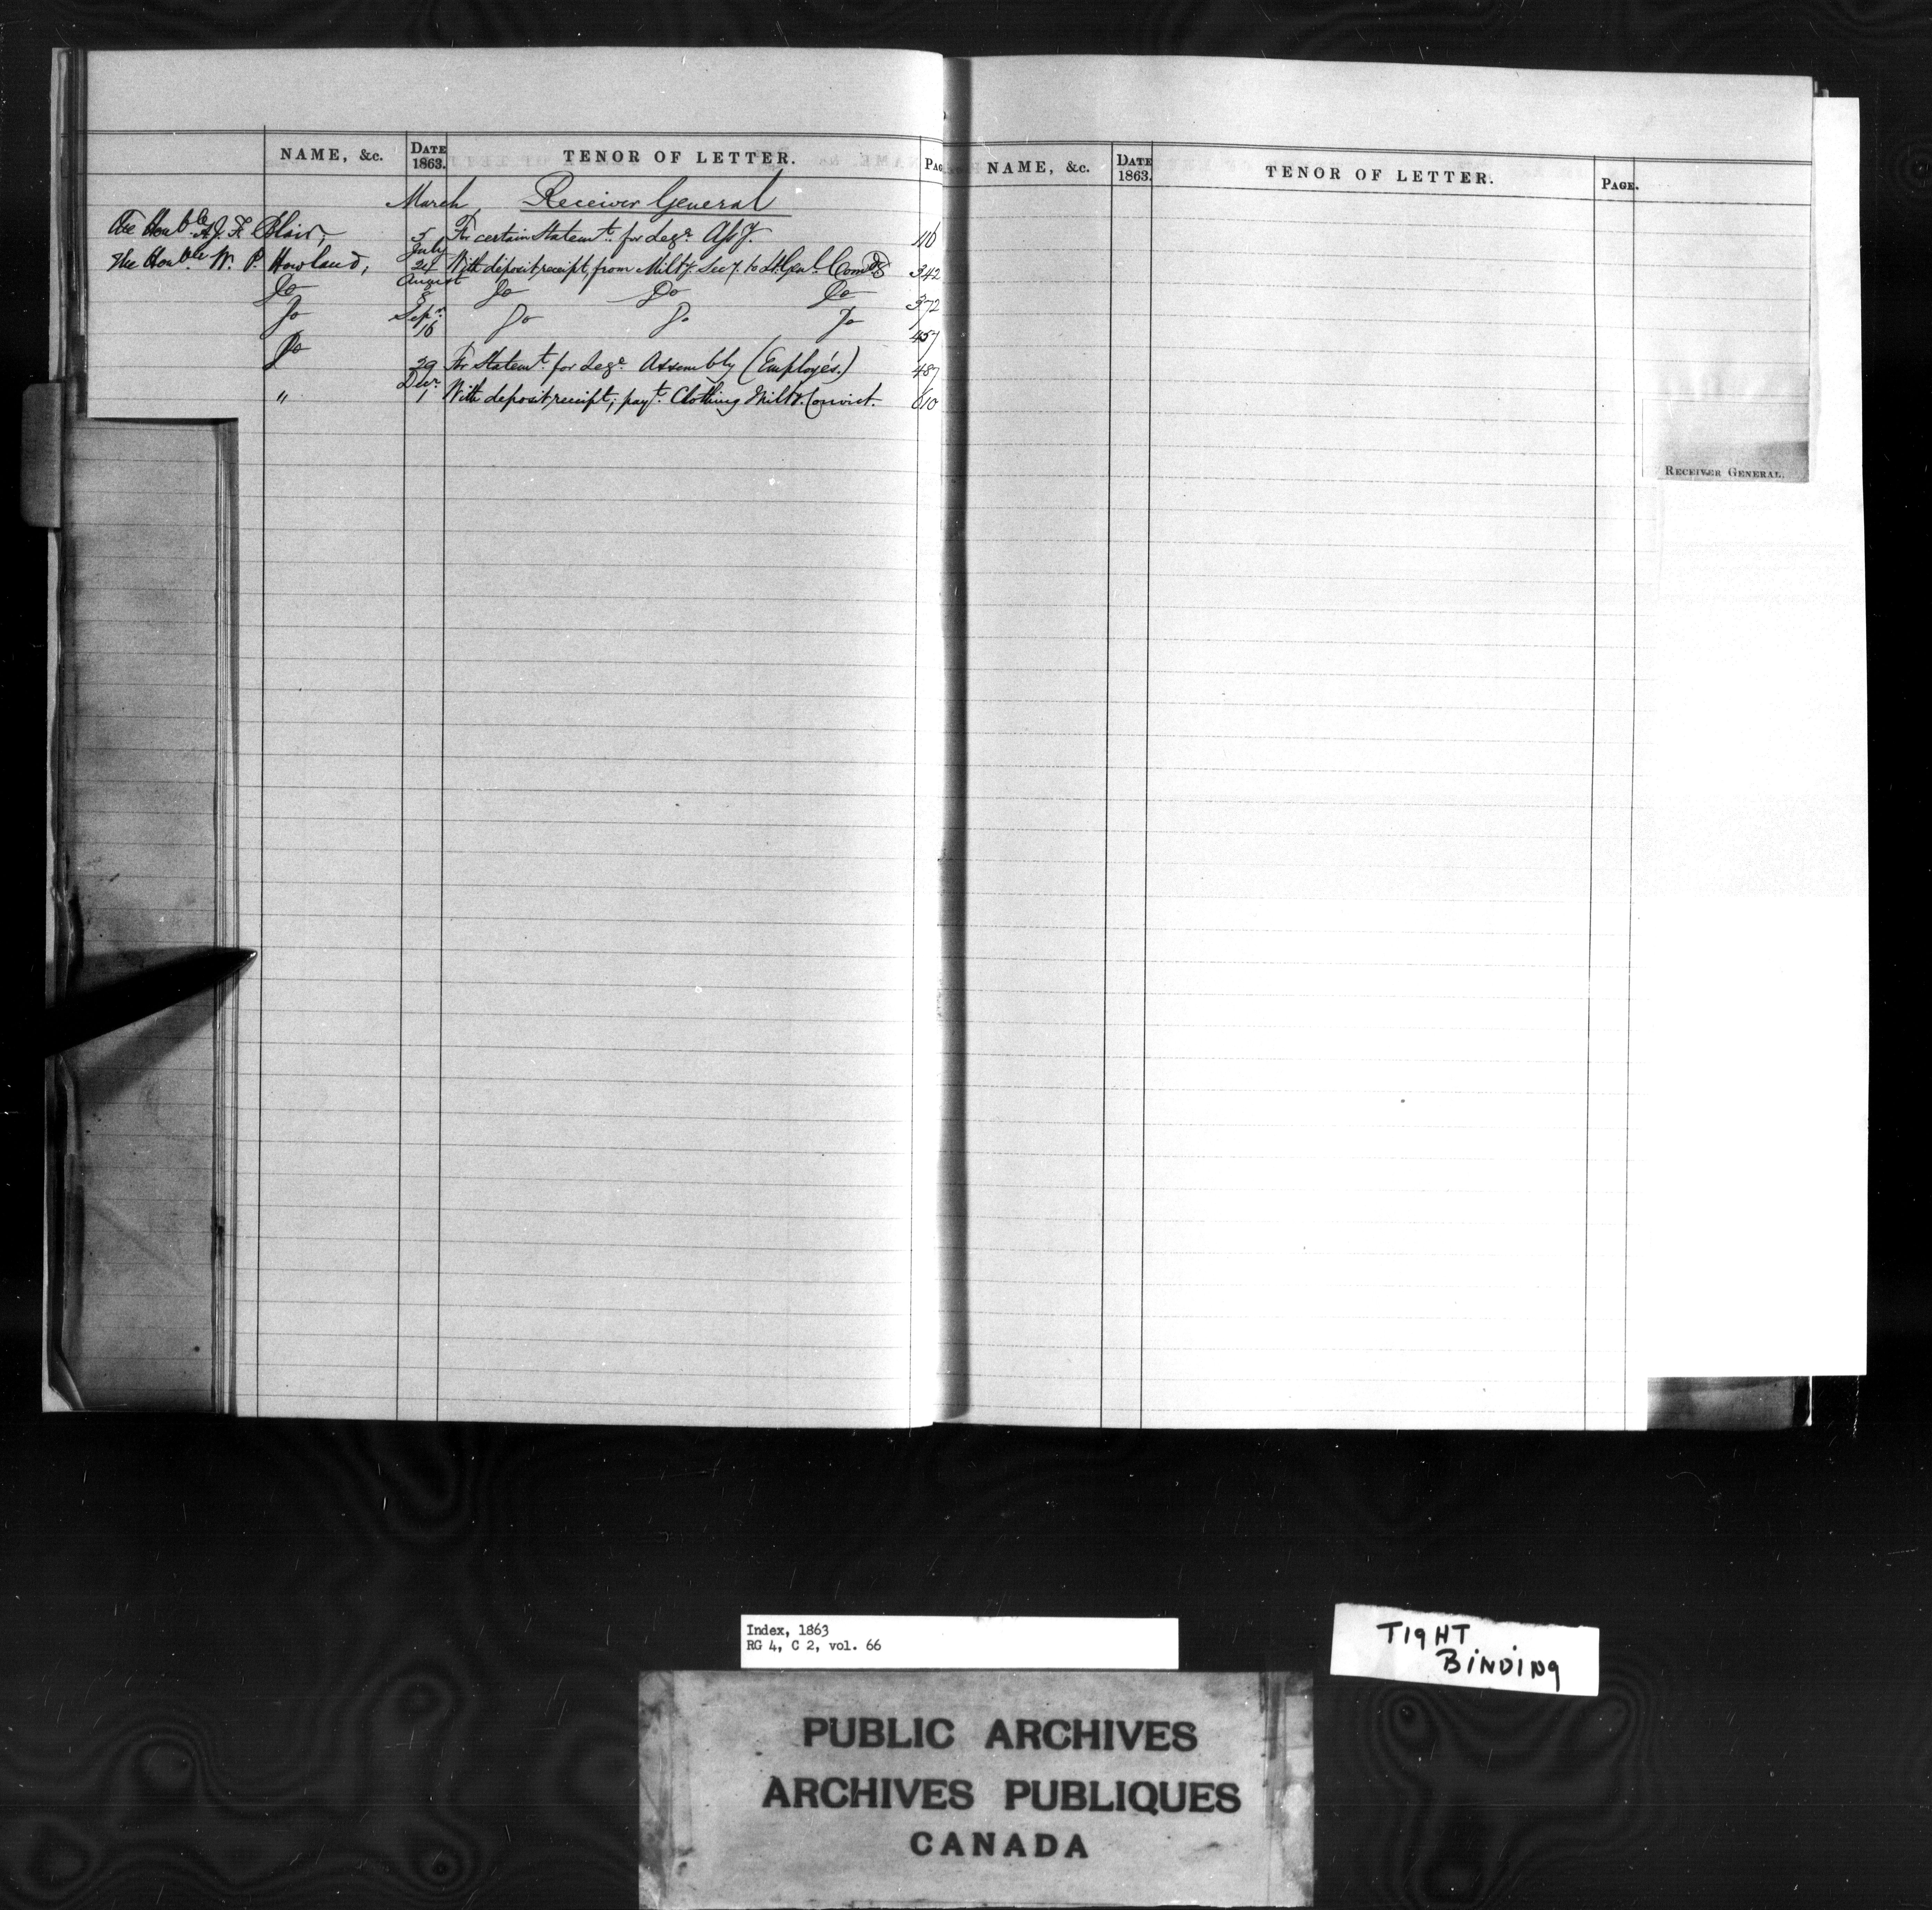 NAME, &c. DATE 1863. TENOR OF LETTER. PAG
March Receiver General
The Honble A. J. F. Blair, 5 For certain Statemt. for Lege. 116
July
The Honble. W. P. Howland, 24 With deposit receipt, from Milty. Secy. to Lt. Genl. Comdg 342
August
Do 8 Do Do Do 372
Sepr.
Do 16 Do Do Do 457
Do 29 For Statemt. for Lege. Assembly (Employés.) 487
Decr.
" 1 With deposit receipt, payt. Clothing Milty. Convict. 610
NAME, &c. DATE 1863. TENOR OF LETTER. PAGE.
RECEIVER GENERAL.
Index, 1863
RG 4, C 2, vol. 66
TIGHT
BINDING
PUBLIC ARCHIVES
ARCHIVES PUBLIQUES
CANADA